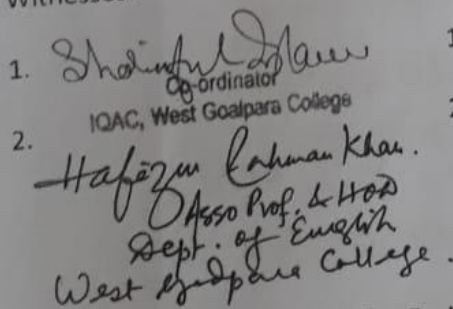 Witnesses
1. Shariful Islam
Co-ordinator
IQAC, West Goalpara College
2. Hafizur Rahman Khan.
Asso Prof. & HOD
Dept. of English
West Goalpara College.